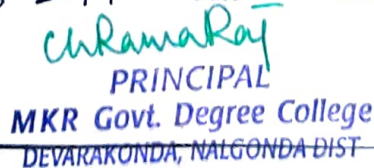 Ch Rama Raj
PRINCIPAL
MKR Govt. Degree College
DEVARAKONDA, NALGONDA DIST